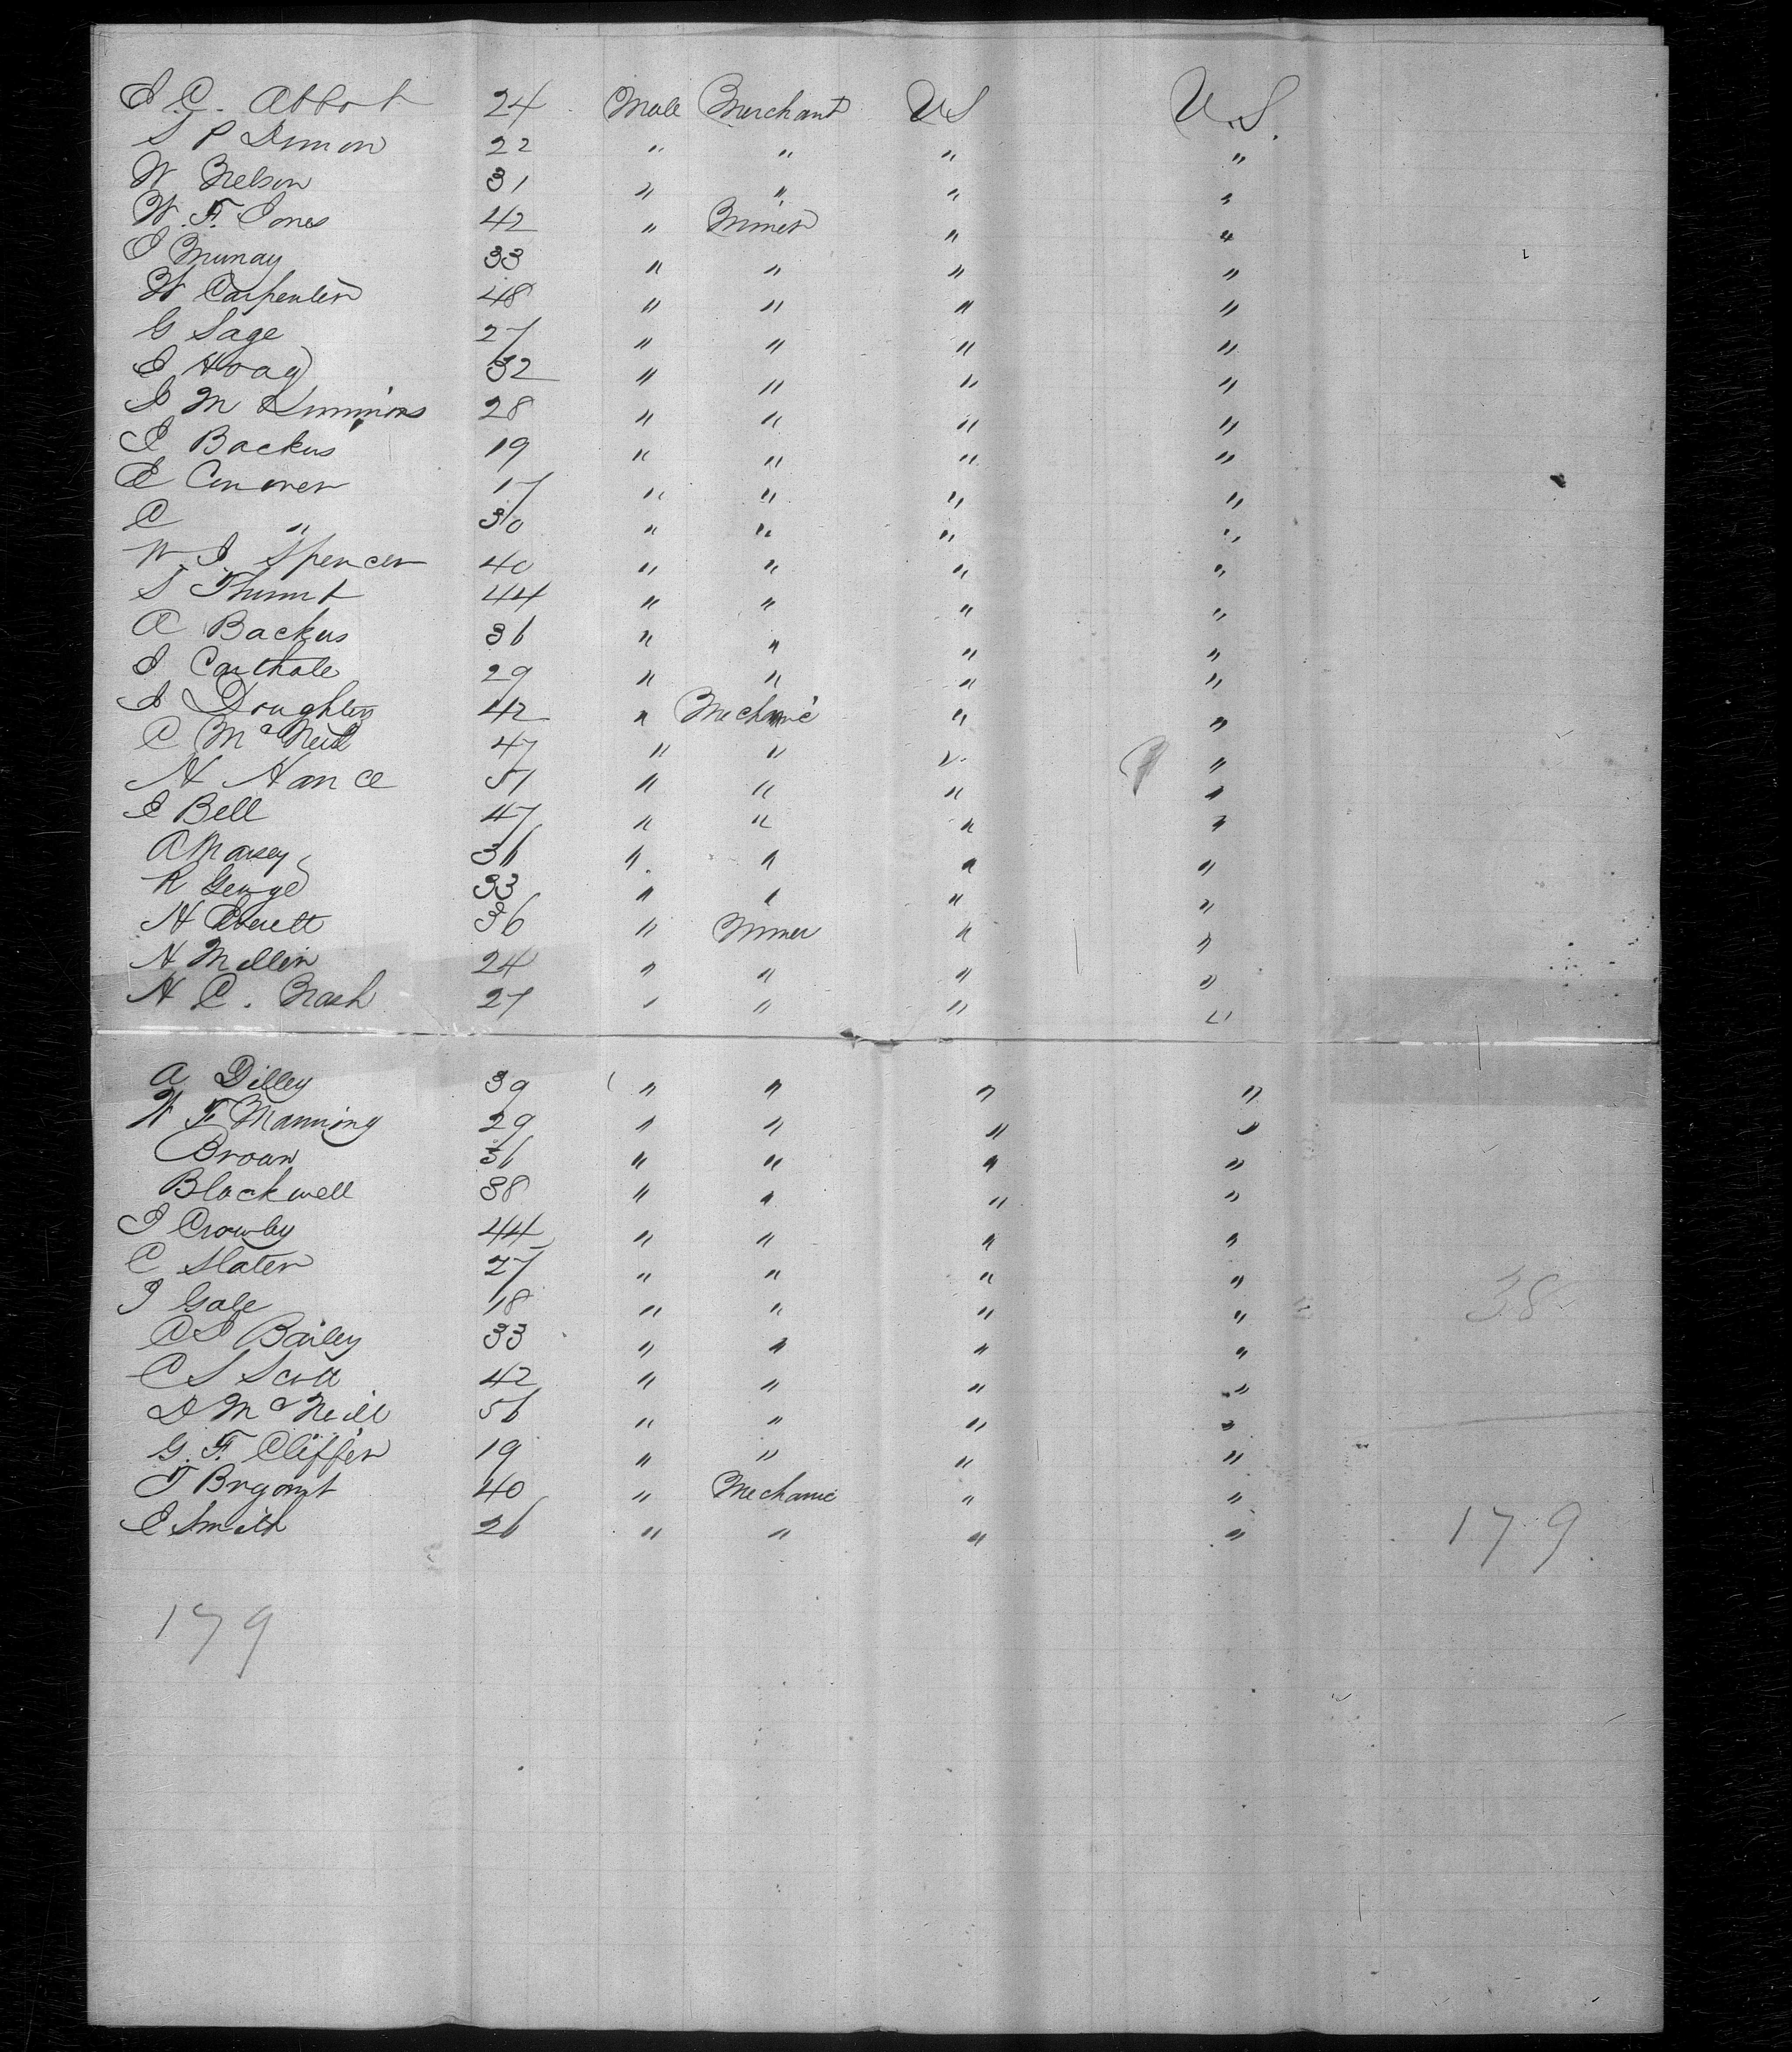 J. C. Abbot 24 Male Merchant US U.S.
S P Dimon 22 " " " "
W Nelson 31 " " " "
W. F. Jones 42 " Miner " "
J Murray 33 " " " "
W Carpenter 48 " " " "
G Sage 27 " " " "
J Hoag 32 " " " "
J M Simmons 28 " " " "
J Backus 19 " " " "
E Conover 17 " " " "
C " 30 " " " "
W. J. Spencer 40 " " " "
S 44 " " " "
A Backus 36 " " " "
J 29 " " " "
J 42 " Mechanic " "
C McNeil 47 " " " "
H Nance 51 " " " "
J Bell 47 " " " "
A 36 " " " "
R George 33 " " " "
H Everett 36 " Miner " "
H Mellen 24 " " " "
H C. Nash 27 " " " "
A Dilley 39 " " " "
W F Manning 29 " " " "
Brown 36 " " " "
Blackwell 38 " " " "
J 44 " " " "
C Slater 27 " " " "
J Gale 18 " " " "
38
C S Bailey 33 " " " "
C S Scott 42 " " " "
D McNeill 56 " " " "
G. F. Cliffer 19 " " " "
T Bryant 40 " Mechanic " "
E Smith 26 " " " "
179
179